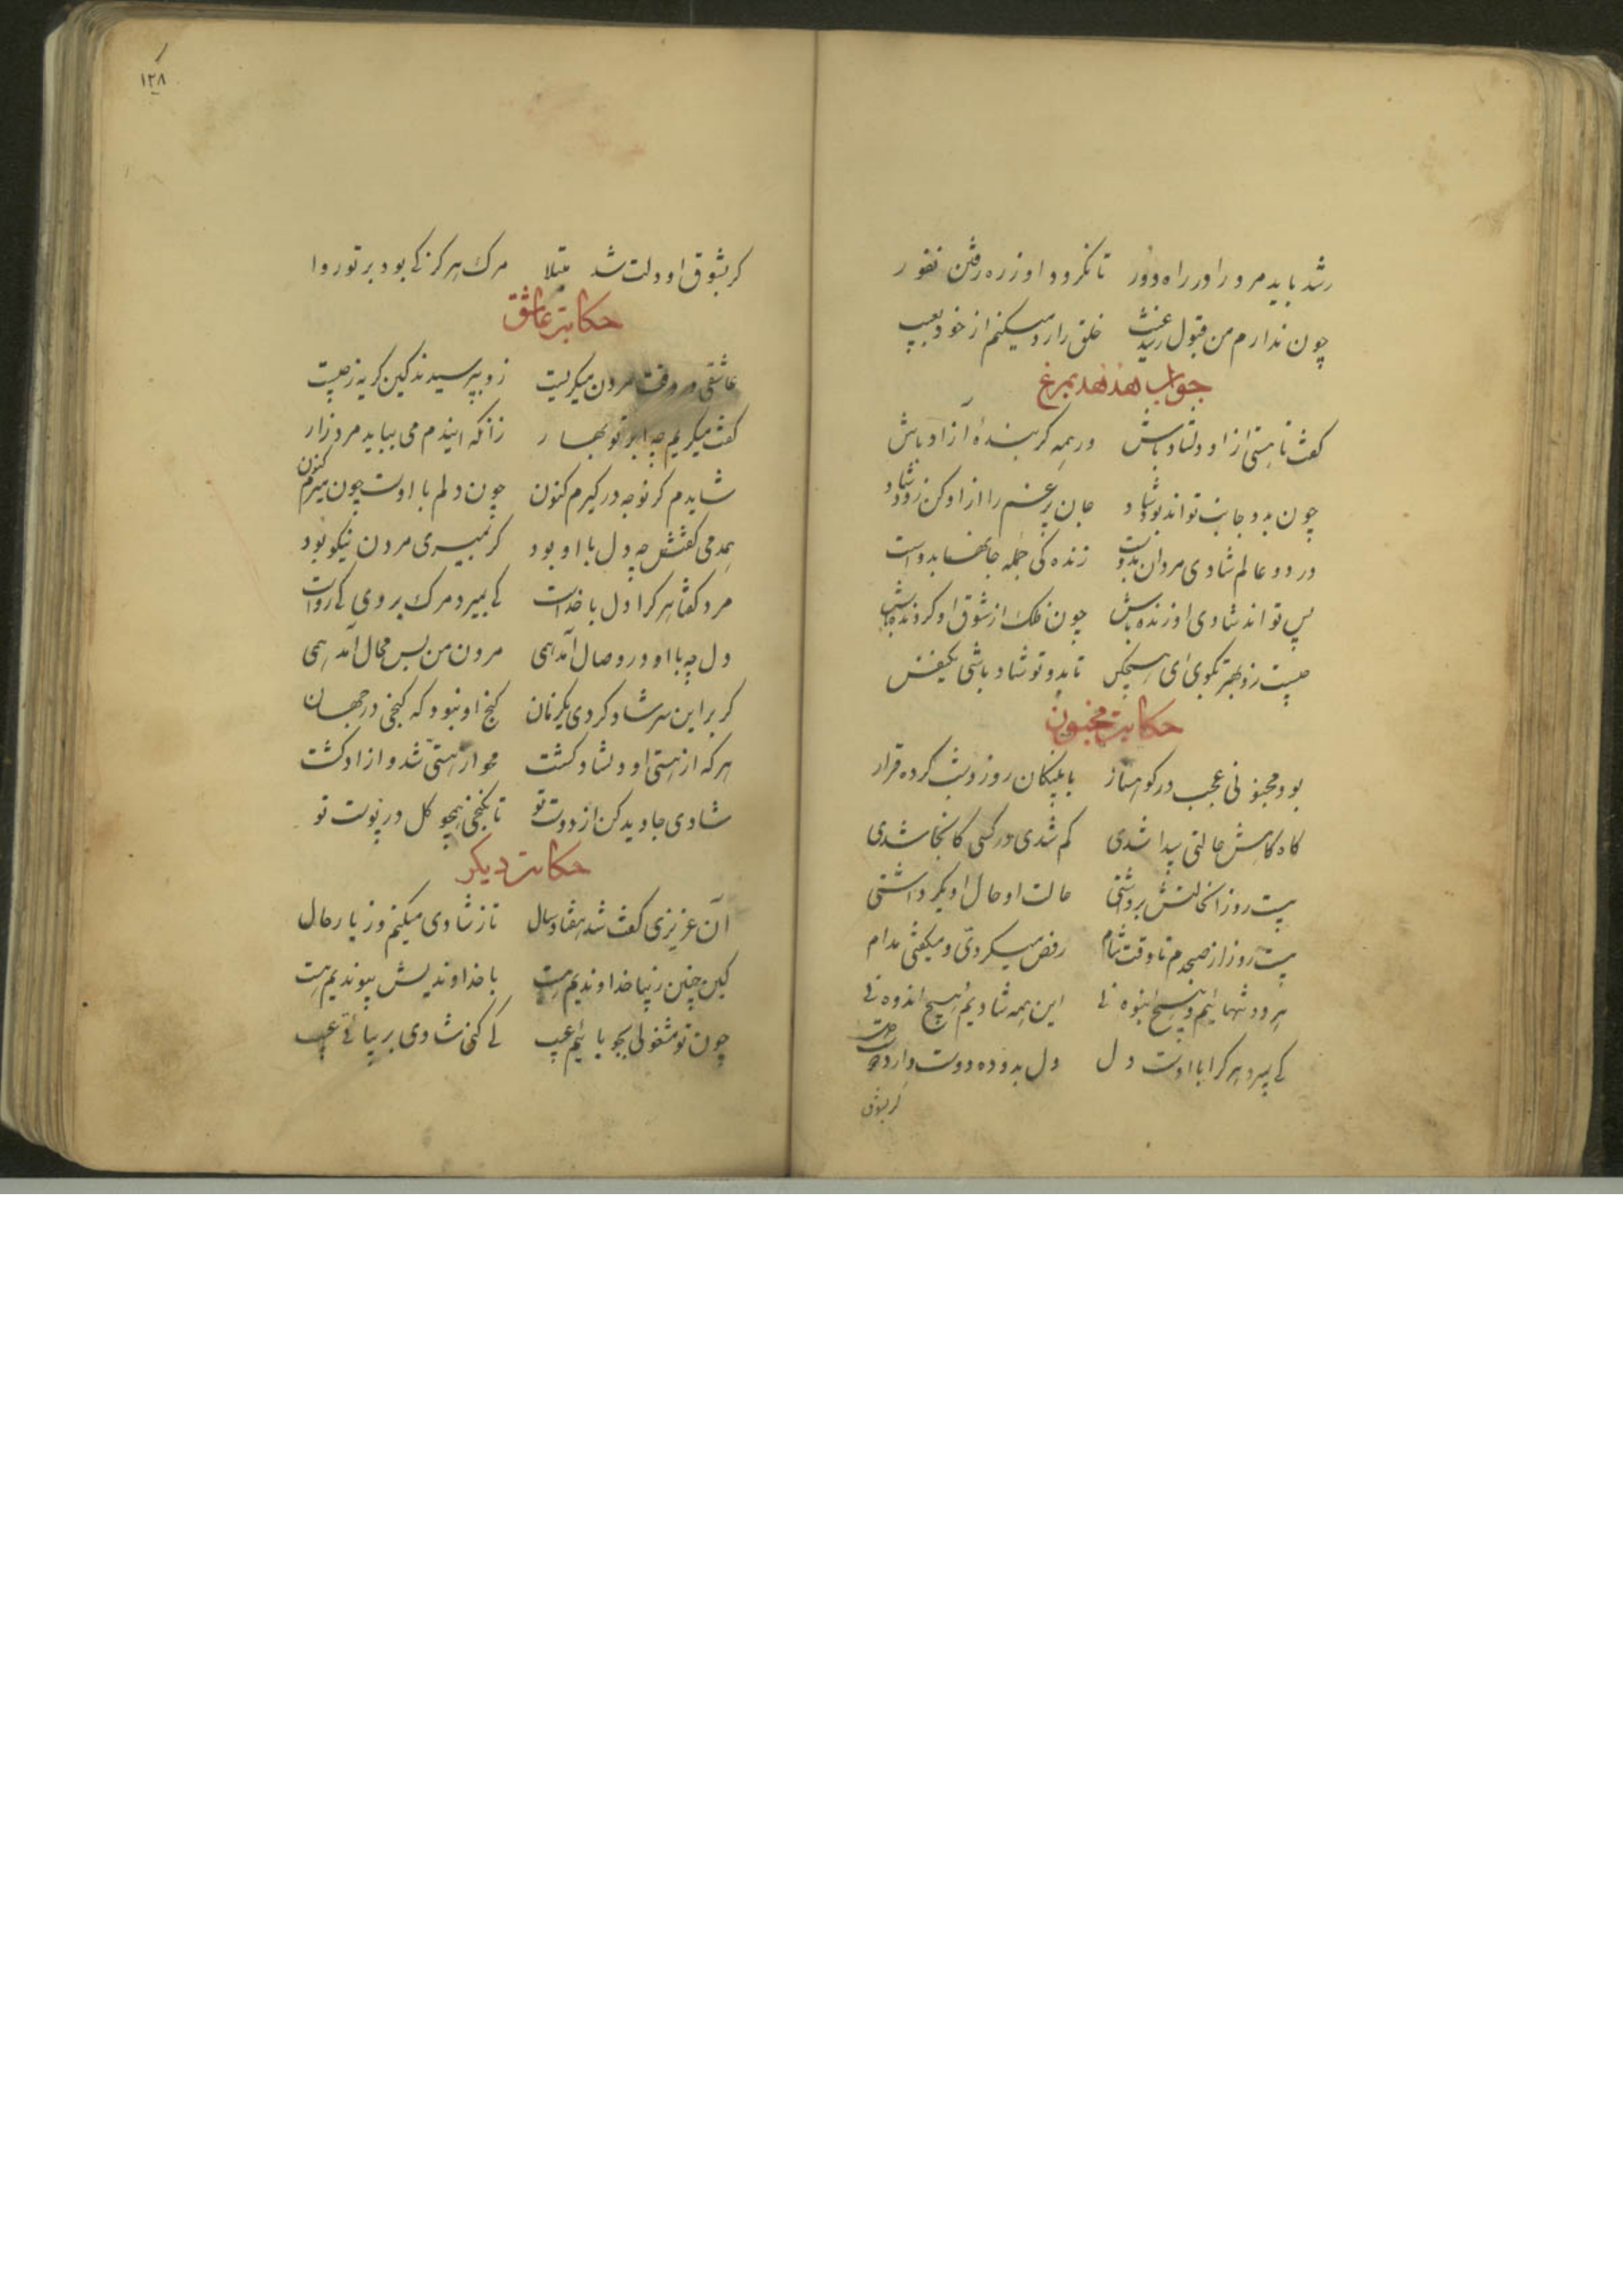 رشد باید مرد را در راه دور تا نکردد او ز ره رفتن نفور
چون ندارم من قبول رشد غیب خلق را رد میکنم از خود بعیب
جواب هدهد بمرغ
کفت تا هستی از او دلشاد باش در همه کر بندهٔ آزاد باش
چون بدو جانت تواند بود شاد جان پرغم را از او کن زود شاد
در دو عالم شادی مردان بدوست زنده کی جمله جانها بدوست
پس تو اند شادی او زنده باش چون فلک از شوق او کردنده باش
چیست زو بهتر بکوی ای هیچکس تا بدو تو شاد باشی یکنفس
حکایت مجنون
بود مجنونی عجب در کوهسار با پلنکان روز و شب کرده قرار
کاه کاهش حالتی پیدا شدی کم شدی در کسی کانجا شدی
بیست روز آنحالتش برداشتی حالت او حال دیکر داشتی
بیست روز از صبحدم تا وقت شام رقص میکردی و میکفتی مدام
هر دو تنهائیم و هیچ انبوه نی این همه شادیم هیچ اندوه نی
کی بمیرد هر کرا با اوست دل دل بدو ده دوست دارد
کر بشوق
۱۲۸
کر بشوق او دلت شد مبتلا مرک هرکز کی بود بر تو روا
حکایت عاشق
عاشقی در وقت مردن میکریست زو بپرسیدند کین کریه ز چیست
کفت میکریم چه ابر نوبهار زانکه ایندم می بباید مرد زار
شایدم کر نوحه درکیرم کنون چون دلم با اوست چون میرم کنون
همدمی کفتش چه دل با او بود کر بمیری مردن نیکو بود
مرد کفتا هر کرا دل با خداست کی بمیرد مرک بر وی کی رواست
دل چه با او در وصال آمد همی مردن من بس محال آمد همی
کر بر این سر شاد کردی یکزمان کنج او نبود که کنجی در جهان
هر که از هستی او دلشاد کشت محو از هستی شد و آزاد کشت
شادی جاوید کن از دوست تو تا نکنجی همچو کل در پوست تو
حکایت دیکر
آن عزیزی کفت شد هفتاد سال تا ز شادی میکنم وز یار حال
کین چنین زیبا خداوندیم هست با خداوندیش پیوندیم هست
چون تو مشغولی بجویائیم عیب کی کنی شادی بزیبائی غیب